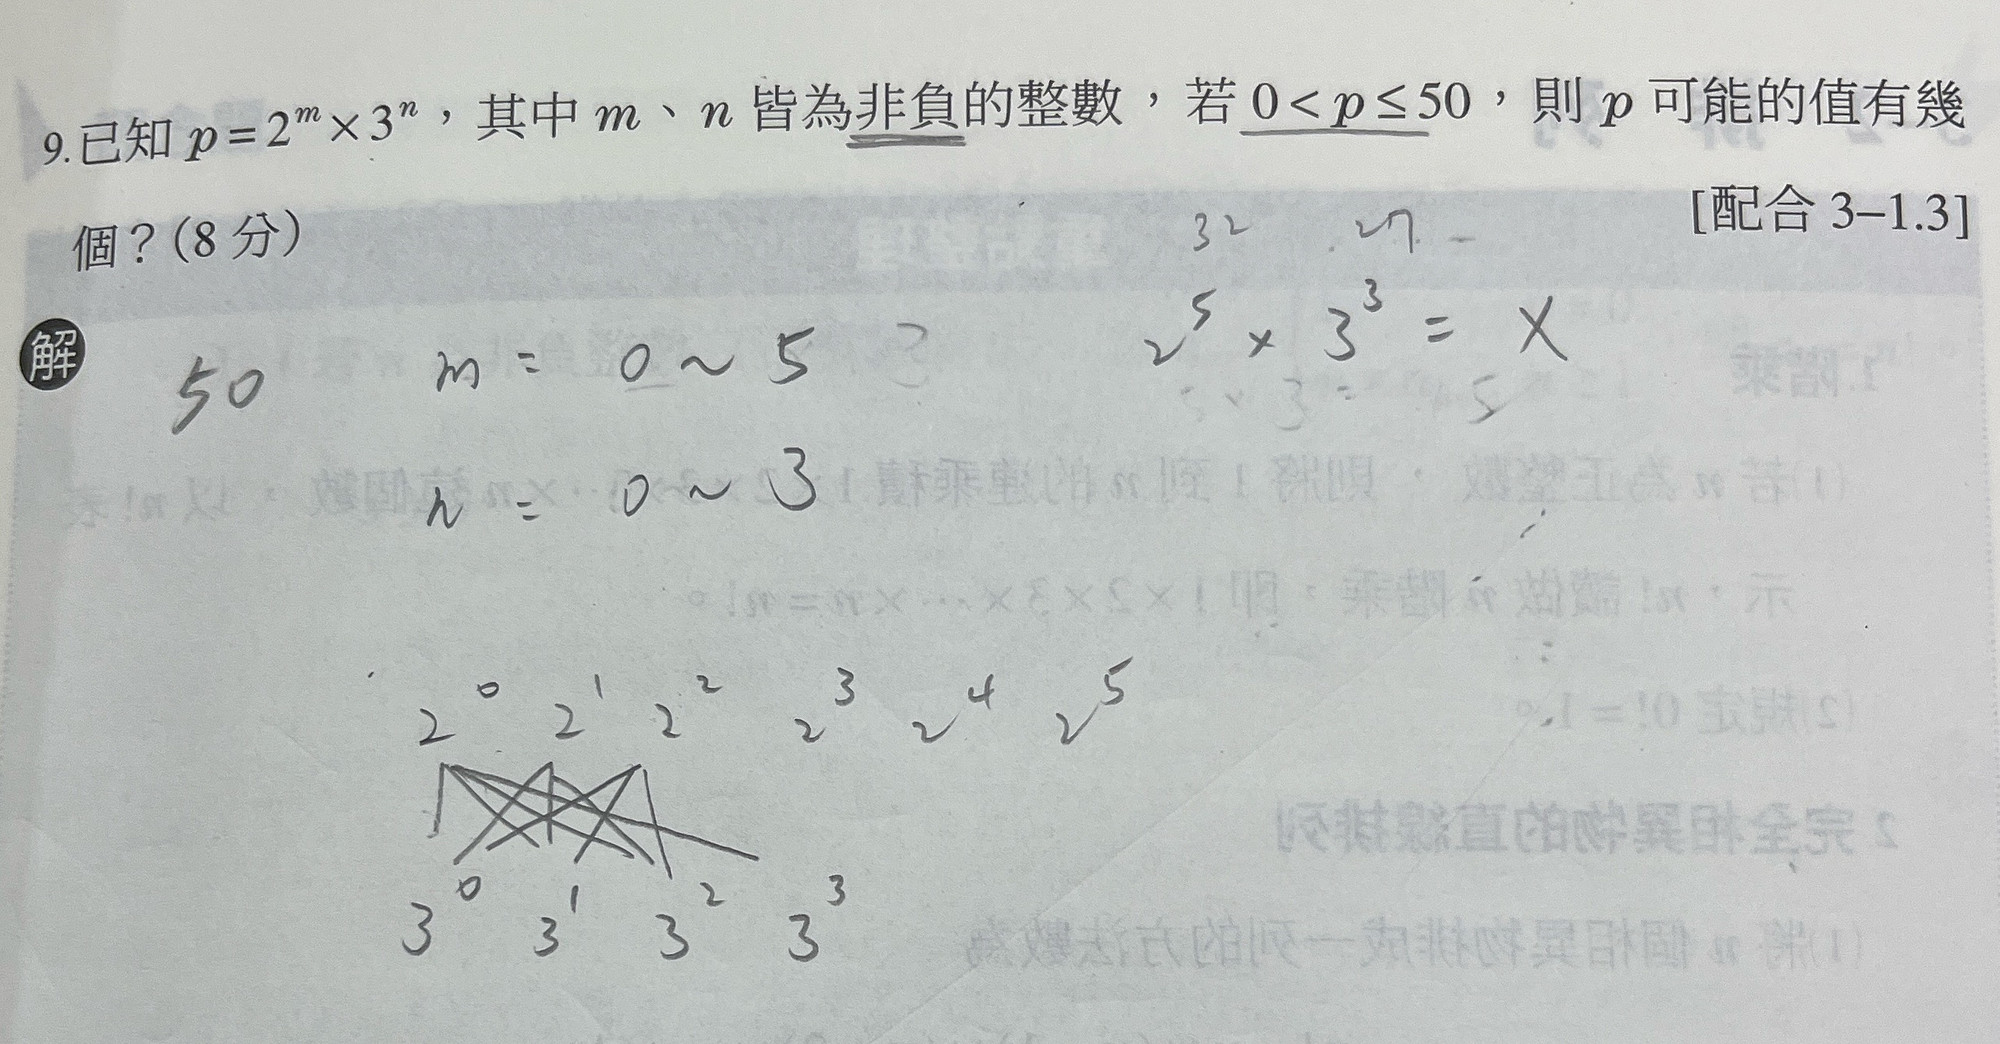 9.已知 p=2^m×3^n，其中 m、n 皆為非負的整數，若 0<p≤50，則 p 可能的值有幾
個？(8 分)
[配合 3–1.3]
32 27
解
50 m = 0 ~ 5 2^5 × 3^3 = X
n = 0 ~ 3
2^0 2^1 2^2 2^3 2^4 2^5
3^0 3^1 3^2 3^3